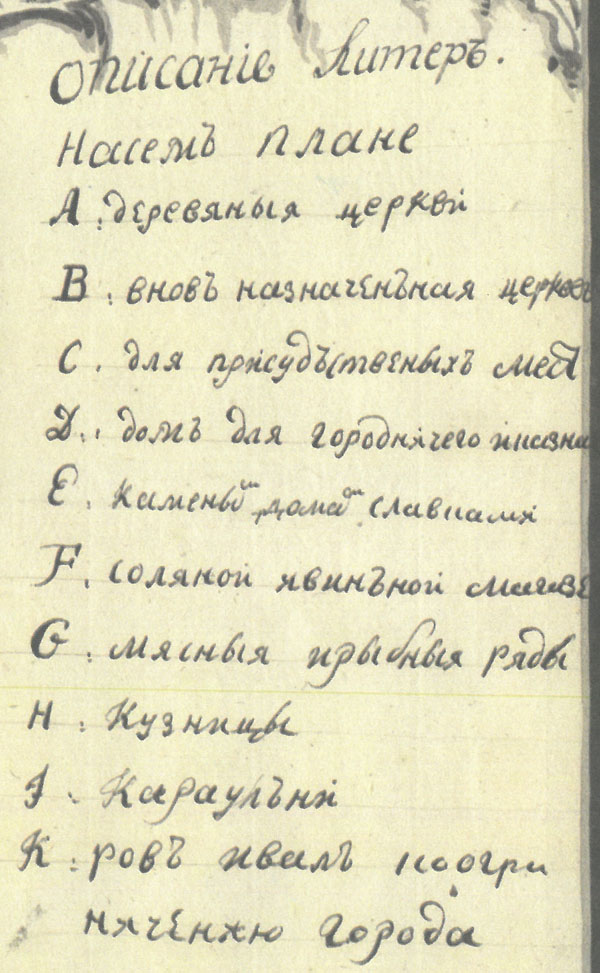 описаніе литеръ.
Насемъ плане
А. деревяныя церкви
В. вновъ назначенъная церков
С. для присудъственыхъ мест
D. домъ для городничего иказна
Е. каменыи дома славками
F. соляной ивинъной магазе
G. мясныя ирыбныя ряды
Н. кузницы
I. караулъни
К. ровъ ивалъ поогра
ничению города